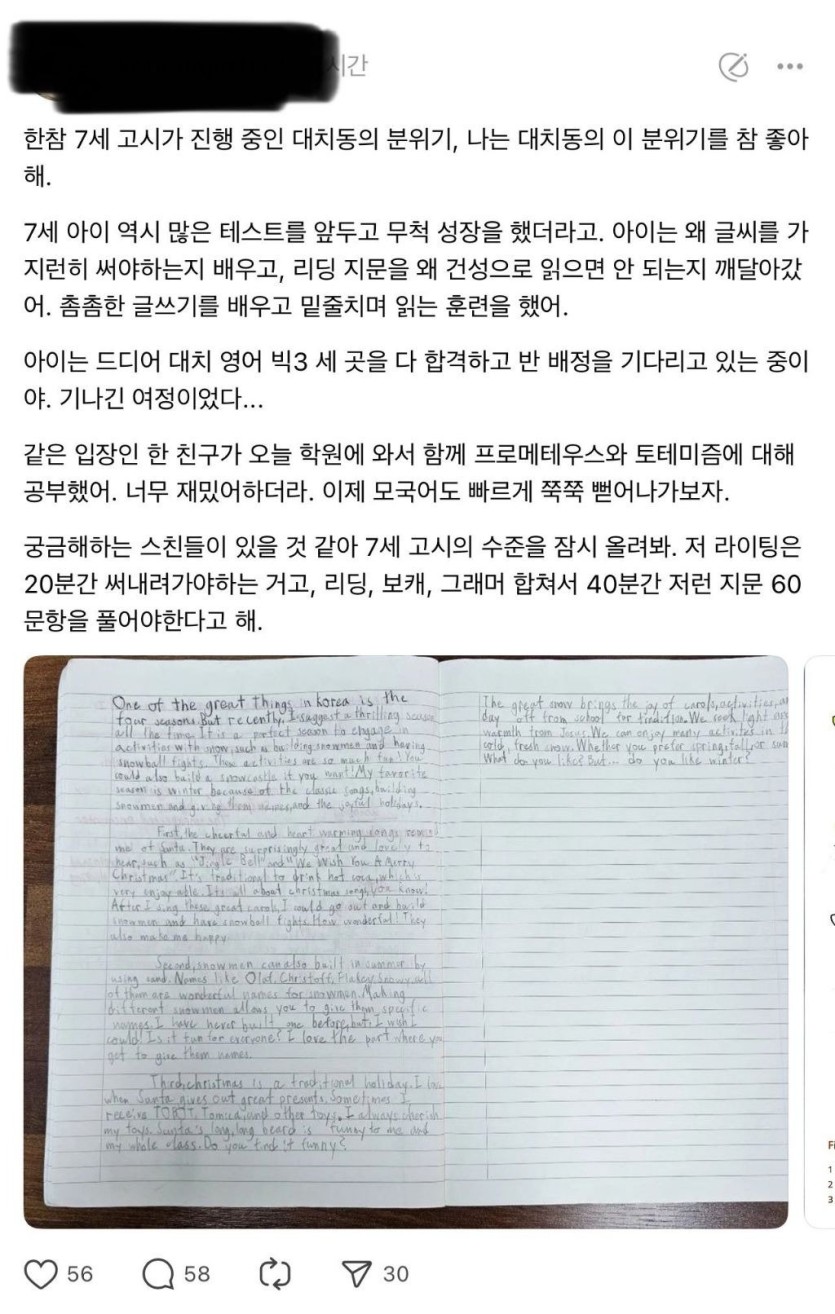 시간
한참 7세 고시가 진행 중인 대치동의 분위기, 나는 대치동의 이 분위기를 참 좋아
해.
7세 아이 역시 많은 테스트를 앞두고 무척 성장을 했더라고. 아이는 왜 글씨를 가
지런히 써야하는지 배우고, 리딩 지문을 왜 건성으로 읽으면 안 되는지 깨달아갔
어. 촘촘한 글쓰기를 배우고 밑줄치며 읽는 훈련을 했어.
아이는 드디어 대치 영어 빅3 세 곳을 다 합격하고 반 배정을 기다리고 있는 중이
야. 기나긴 여정이었다...
같은 입장인 한 친구가 오늘 학원에 와서 함께 프로메테우스와 토테미즘에 대해
공부했어. 너무 재밌어하더라. 이제 모국어도 빠르게 쭉쭉 뻗어나가보자.
궁금해하는 스친들이 있을 것 같아 7세 고시의 수준을 잠시 올려봐. 저 라이팅은
20분간 써내려가야하는 거고, 리딩, 보캐, 그래머 합쳐서 40분간 저런 지문 60
문항을 풀어야한다고 해.
One of the great things in korea is the
four seasons. But recently, I suggest a thrilling season
all the time. It is a perfect season to engage in
activities with snow, such as building snowmen and having
snowball fights. These activities are so much fun! You
could also build a snowcastle if you want! My favorite
season is winter because of the classic songs, building
snowmen and giving them names, and the joyful holidays.
First, the cheerful and heart warming songs remind
me of Santa. They are surprisingly great and lovely to
hear, such as "Jingle Bell" and "We Wish You A Merry
Christmas". It's traditional to drink hot coca, which is
very enjoy able. It's all about christmas songs, you know!
After I sing these great carols, I could go out and build
snowmen and have snowball fights. How wonderful! They
also make me happy.
Second, snowmen can also built in summer by
using sand. Names like Olaf, Christoff, Flakey, Snowy all
of them are wonderful names for snowmen. Making
different snowmen allows you to give them specific
names. I have never built one before, but I wish I
could! Is it fun for everyone? I love the part where you
get to give them names.
Third, christmas is a traditional holiday. I love
when Santa gives out great presents. Sometimes I
receive TOBOT, Tomica, and other toys. I always cherish
my toys. Santa's long, long beard is funny to me and
my whole class. Do you find it funny?
The great snow brings the joy of carols, activities, a
day off from school for tradition. We seek light and
warmth from Jesus. We can enjoy many activities in t
cold, fresh snow. Whether you prefer spring, fall, or sum
What do you like? But... do you like winter?
Fi
1
2
3
56
58
30